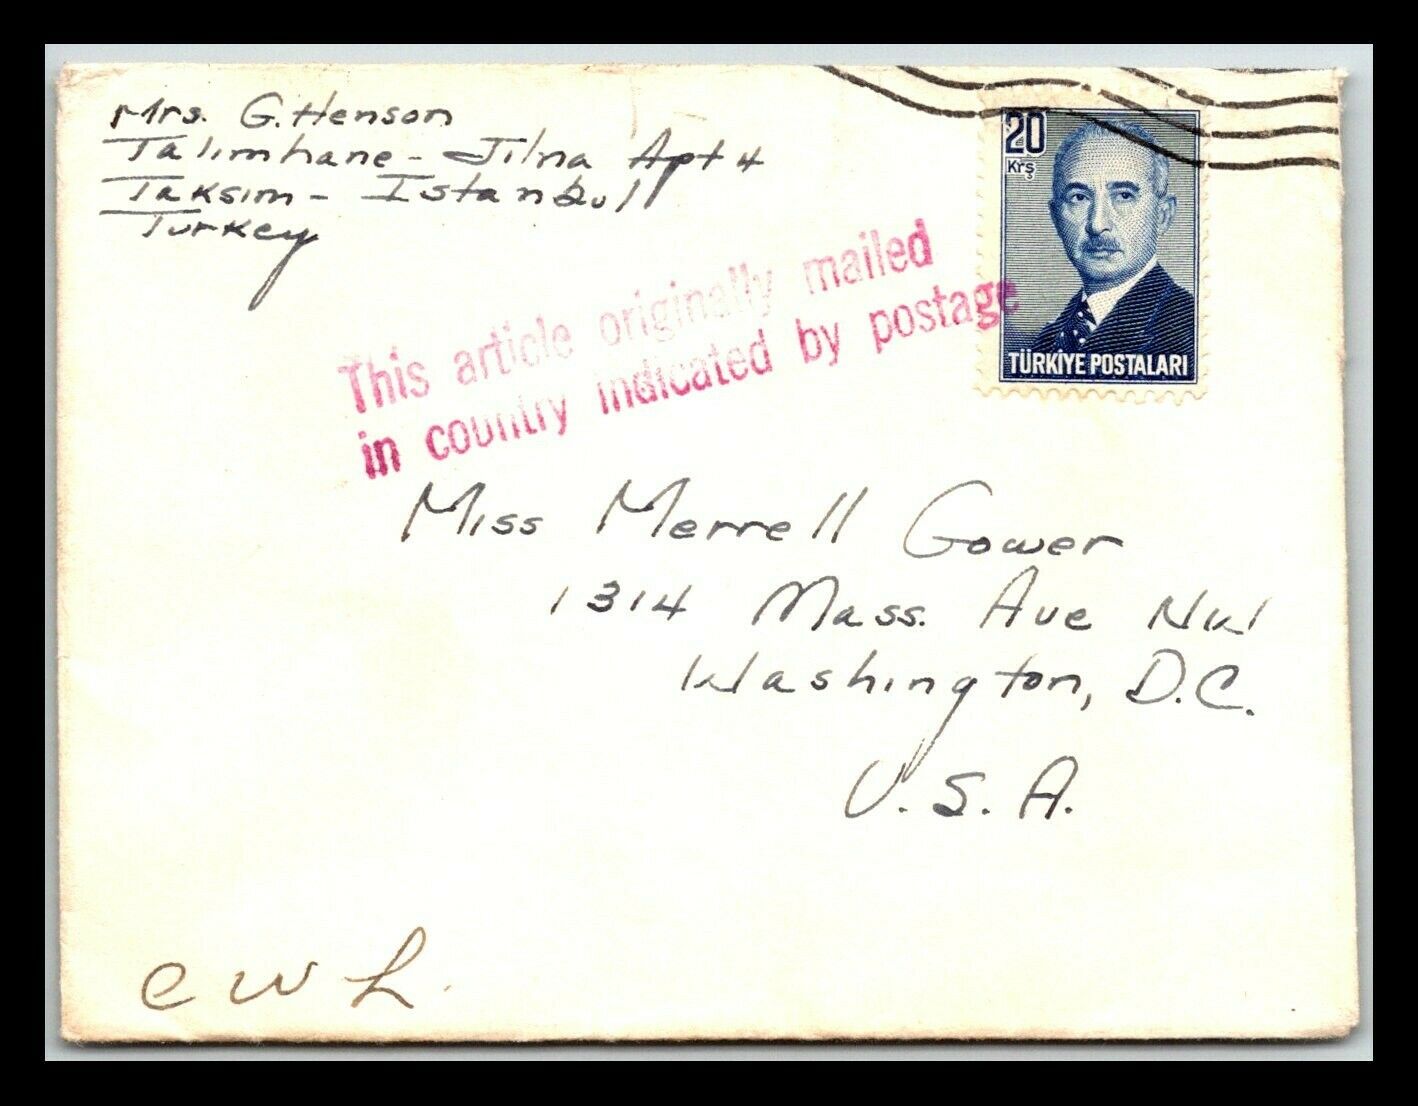 Mrs. G. Henson
Talimhane - Jilna Apt 4
Taksim - Istanbull
Turkey
20
Krş
TÜRKİYE POSTALARI
This article originally mailed
in country indicated by postage
Miss Merrell Gower
1314 Mass. Ave NW
Washington, D.C.
U.S.A.
C W L.